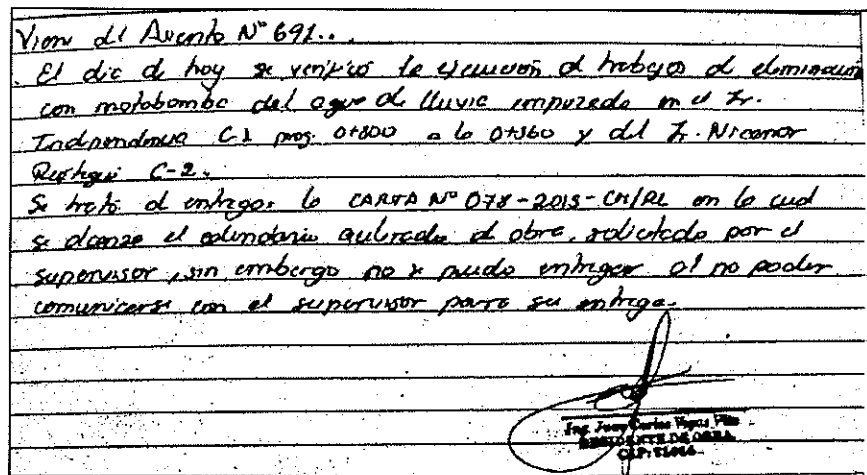 Viene del Asiento N° 691..
. El dia de hoy se verifico la ejecución de trabajos de eliminacion
con motobomba del agua de lluvia empozada en el Jr.
Independencia C-1 prog. 0+800 a la 0+360 y del Jr. Nicanor
C-2.
Se trató de entregar la CARTA N° 078-2015-CH/RL en la cual
se alcanza el calendario acelerado de obra, solicitado por el
supervisor, sin embargo no se puedo entregar al no poder
comunicarse con el supervisor para su entrega.
Ing. Juan Carlos Vegas
RESIDENTE DE OBRA
CIP: